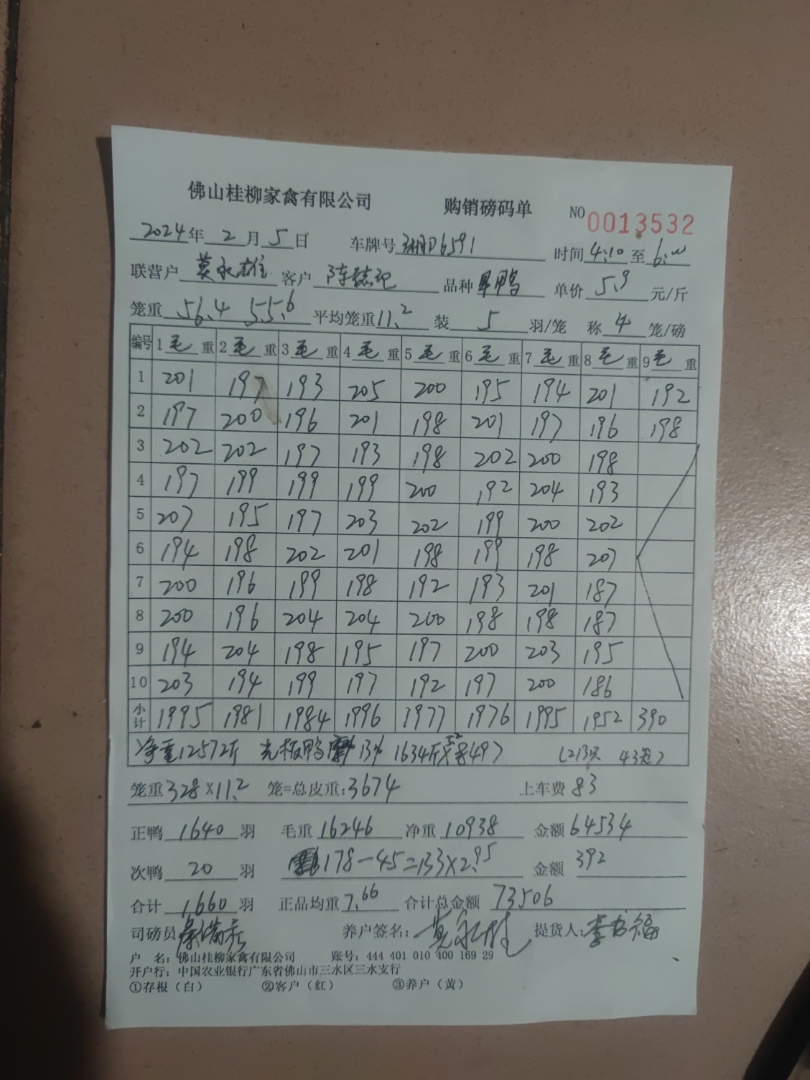 佛山桂柳家禽有限公司 购销磅码单 NO 0013532
2024年2月5日 车牌号 D6591 时间4:10至6:00
联营户 莫永雄 客户 陈 记 品种 鸭 单价 5.9 元/斤
笼重 56.4 55.6 平均笼重11.2 装 5 羽/笼 称 4 笼/磅
编号 1毛重 2毛重 3毛重 4毛重 5毛重 6毛重 7毛重 8毛重 9毛重
1 201 197 193 205 200 195 194 201 192
2 197 200 196 201 198 201 197 196 198
3 202 202 197 193 198 202 200 198
4 197 199 199 199 200 192 204 193
5 207 195 197 203 202 199 200 202
6 194 198 202 201 198 199 198 207
7 200 196 199 198 192 193 201 187
8 200 196 204 204 200 198 198 187
9 194 204 198 195 197 200 203 195
10 203 194 199 197 192 197 200 186
小计 1995 1981 1984 1996 1977 1976 1995 1952 390
净重12572斤 光板鸭 13% 1634斤 (213只 43笼)
笼重328×11.2 笼=总皮重:3674 上车费 83
正鸭 1640 羽 毛重 16246 净重 10938 金额 64534
次鸭 20 羽 178-45=133×2.95 金额 392
合计 1660 羽 正品均重 7.66 合计总金额 73506
司磅员 养户签名: 莫 提货人: 李 福
户 名:佛山桂柳家禽有限公司 账号:444 401 010 400 169 29
开户行:中国农业银行广东省佛山市三水区三水支行
①存根(白) ②客户(红) ③养户(黄)